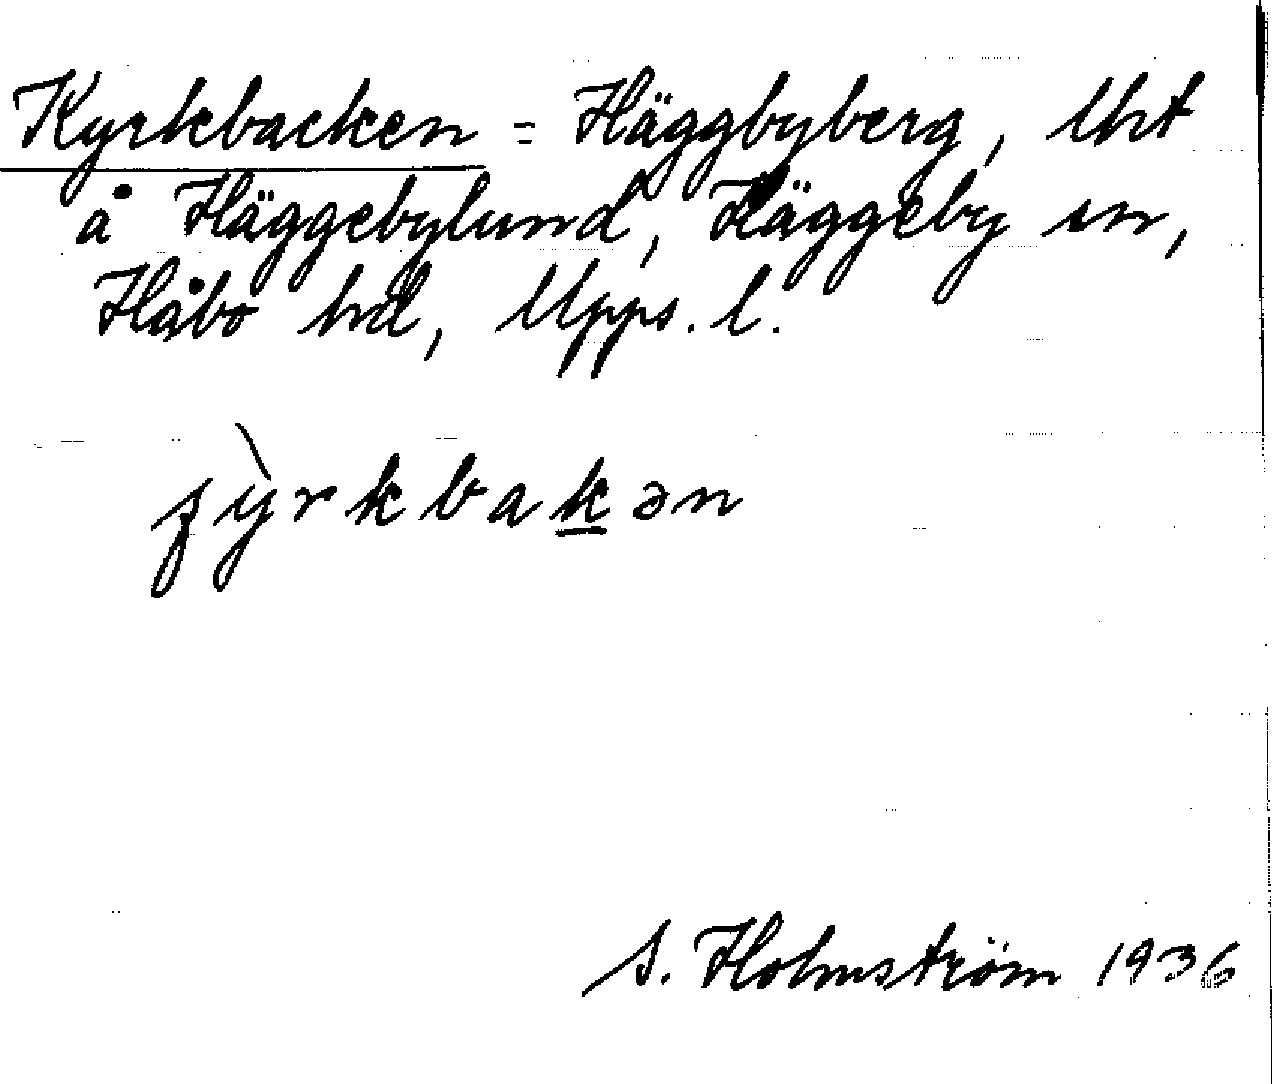 Kyrkbacken = Häggbyberg, lht
å Häggebylund, Häggeby sn,
Håbo hd, Upps. l.
ʃỳrkbakən
S. Holmström 1936